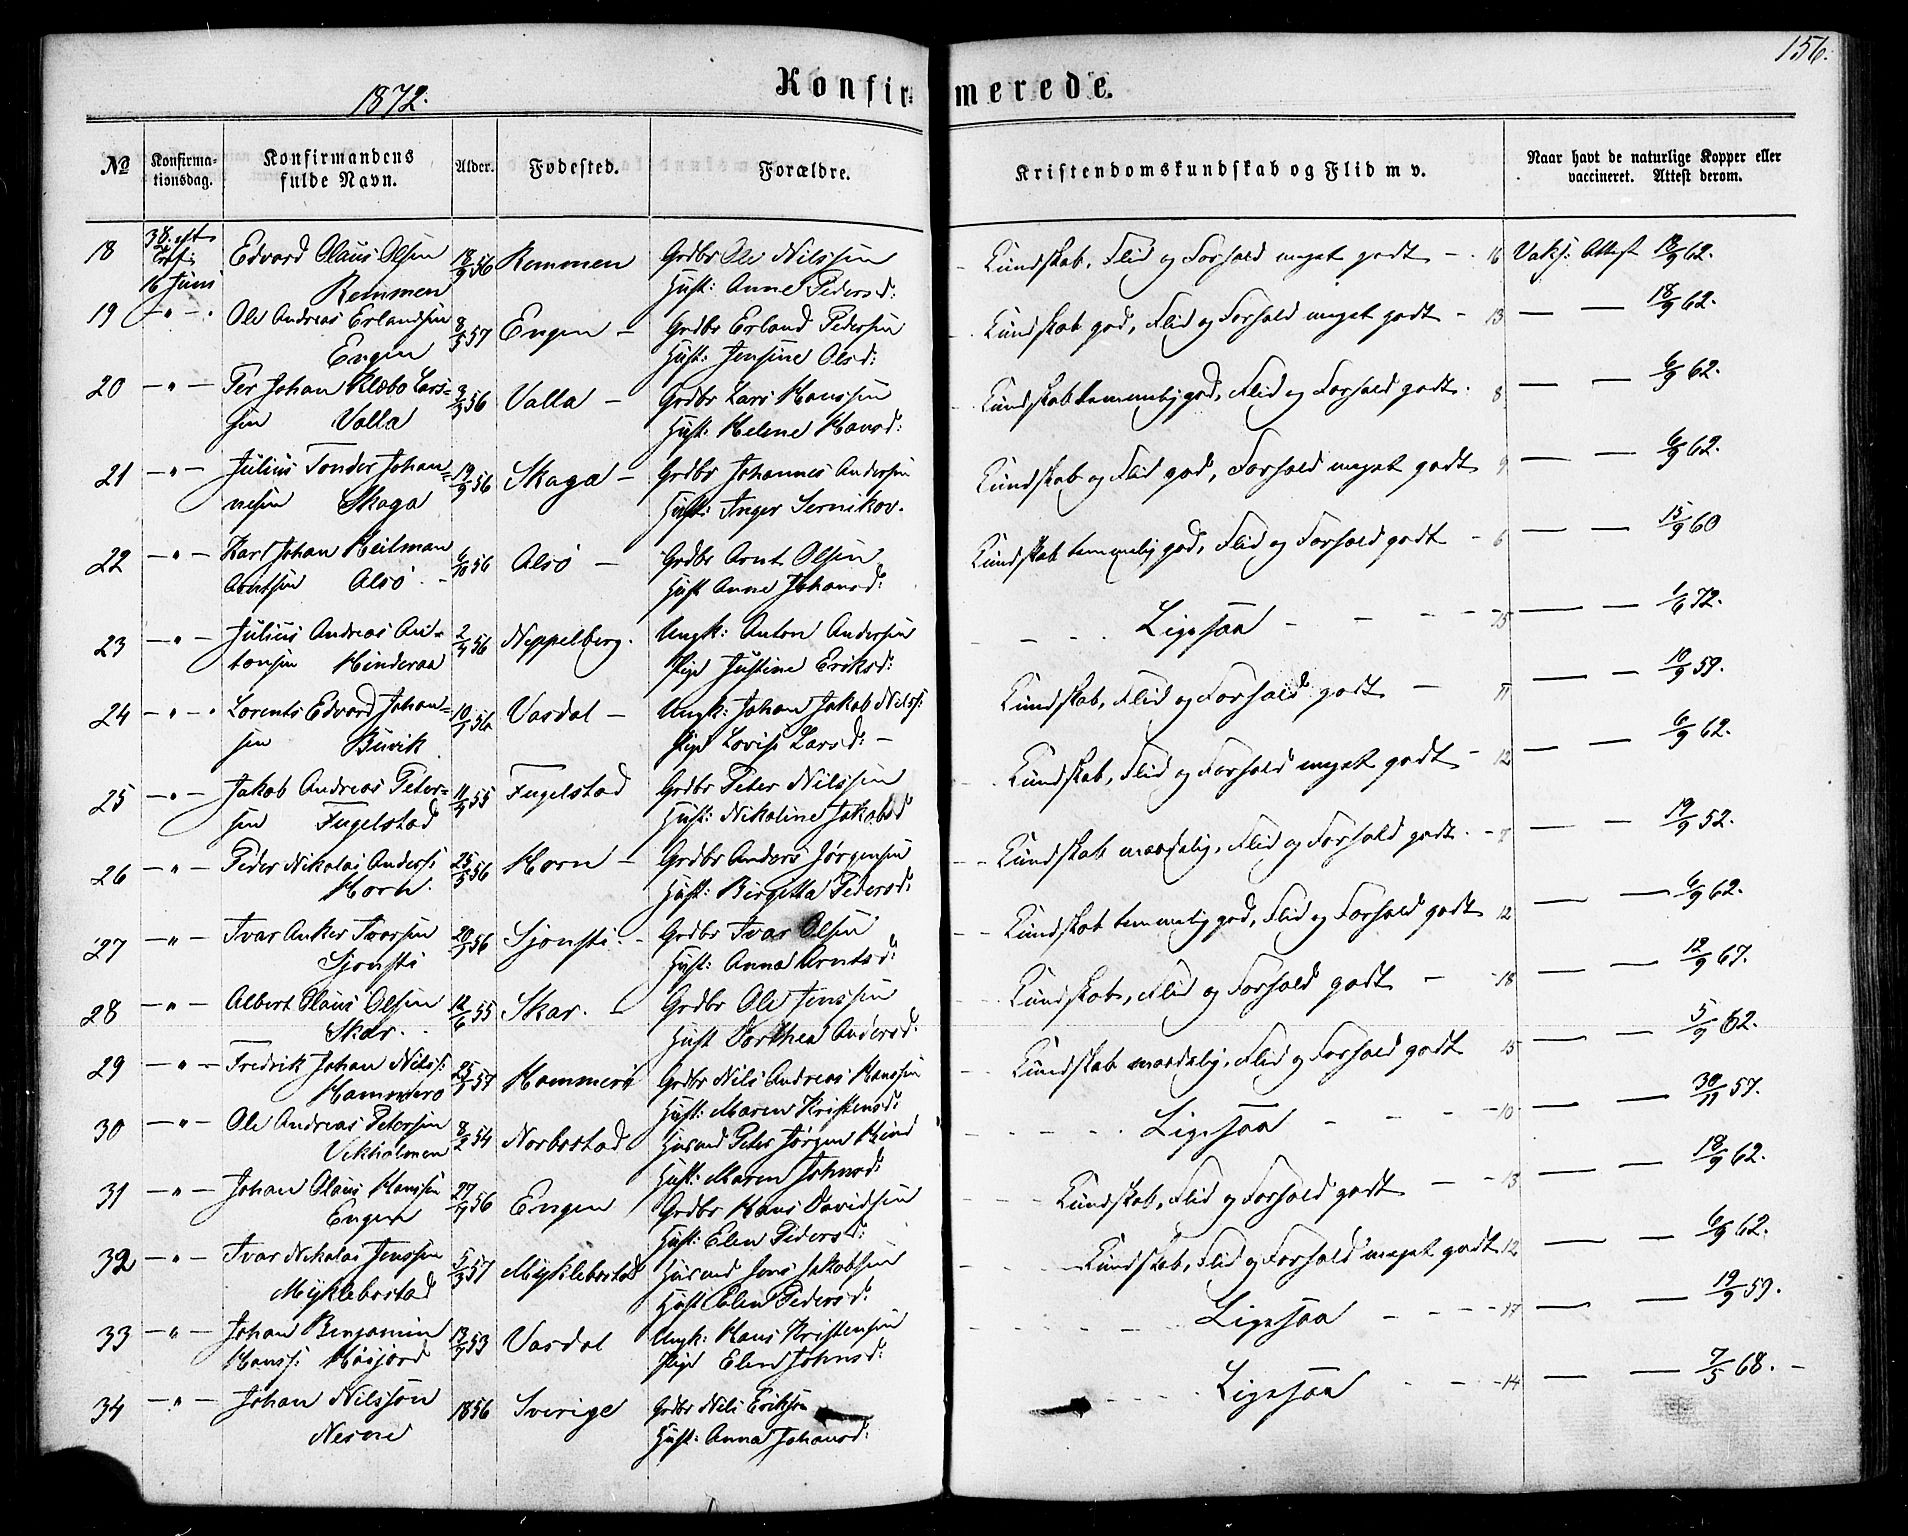 156.
1872.
Konfirmerede.
No
Konfirma-
tionsdag.
Konfirmandens
fulde Navn.
Alder.
Fødested.
Forældre.
Kristendomskundskab og Flid m v.
Naar havt de naturlige Kopper eller
vaccineret. Attest derom.
18 16 Juni Edvard Olaus Olsen 18/9 56 Remmen Grdbr Ole Nilssen Kundskab, Flid og Forhold meget godt 16 Vaks: Attest 18/9 62.
Remmen Hust: Anne Pedersd:
19 - " - Ole Andreas Erlandsen 8/5 57 Engen - Grdbr Erland Pedersen Kundskab god, Flid og Forhold meget godt - 13 — — 18/9 62.
Engen Hust: Jensine Olsd:
20 - " - Per Johan Klæbo Lars= 3/9 56 Valla - Grdbr Lars Hanssen Kundskab temmelig god, Flid og Forhold godt. 8 — — 6/9 62.
sen Valla Hust: Helene Hansd:
21 - " - Julius Tonder Johan= 19/9 56 Skaga - Grdbr Johannes Andersen Kundskab og Flid god, Forhold meget godt 9 — — 6/9 62.
nesen Skaga Hust: Inger Sernikov.
22 - " - Karl Johan Heitman 6/10 56 Alsö - Grdbr Arnt Olsen Kundskab temmelig god, Flid og Forhold godt - 6 — — 15/9 60
Arntsen Alsö - Hust Anne Johansd:
23 - " - Julius Andreas An= 2/4 56 Neppelberg. Ungk: Anton Andersen Ligesaa - - - 15 — — 1/6 72.
tonsen Hinderaa Pige Justine Eriksd:
24 - " - Lorents Edvard Johan= 10/7 56 Vasdal - Ungk: Johan Jakob Nilss: Kundskab, Flid og Forhold godt - 11 — — 10/9 59.
sen Buvik Pige Lovise Larsd: -
25 - " - Jakob Andreas Peter= 11/9 55 Fugelstad Grdbr Peter Nilssen Kundskab, Flid og Forhold meget godt - 12 — — 6/9 62.
sen Fugelstad Hust: Nikoline Jakobsd
26 - " - Peder Nikolai Anders: 25/5 56 Horn - Grdbr Anders Jørgensen Kundskab maadelig, Flid og Forhold godt. - 7 — — 19/9 52.
Horn. Hust: Birgitta Pedersd:
27 - " - Ivar Anker Ivarsen 20/7 56 Sjonsti - Grdbr Ivar Olsen Kundskab temmelig god, Flid og Forhold godt 12 — — 6/9 62.
Sjonsti Hust: Anna Arntsd:
28 - " - Albert Olaus Olsen 12/6 55 Skar. - Grdbr Ole Jenssen Kundskab, Flid og Forhold godt - - 18 — — 12/9 67.
Skar. Hust Dorthea Andersd:
29 - " - Fredrik Johan Nilss: 25/7 57 Hammerö Grdbr Nils Andreas Hanssen Kundskab maadelig, Flid og Forhold godt 15 — — 5/9 62.
Hammerö Hust: Maren Kristensd:
30 - " - Ole Andreas Petersen 8/2 54 Norbostad Husmd Peter Jørgen Hind Ligesaa - - - 10 — — 30/11 57.
Vikholmen Hust: Maren Johnsd:
31 - " - Johan Olaus Hanssen 27/9 56 Engen Grdbr Hans Davidsen Kundskab, Flid og Forhold godt - - 13 — — 18/9 62.
Engen Hust: Elen Pedersd:
32 - " - Ivar Nikolai Jenssen 5/3 57 Myklebostad Husmd Jens Jakobsen Kundskab, Flid og Forhold meget godt 12 — — 6/9 62.
Myklebostad Hust Elen Pedersd:
33 - " - Johan Benjamin 13/9 53 Vasdal Ungk: Hans Kristensen Ligesaa - - - 17 — — 19/9 59.
Hanss: Husjord Pige Elen Johnsd:
34 - " - Johan Nilssön 1856 Sverige Grdbr Nils Eriksön Ligesaa - - - 14 — — 7/5 68. -
Nesne Hust: Anna Johansd: